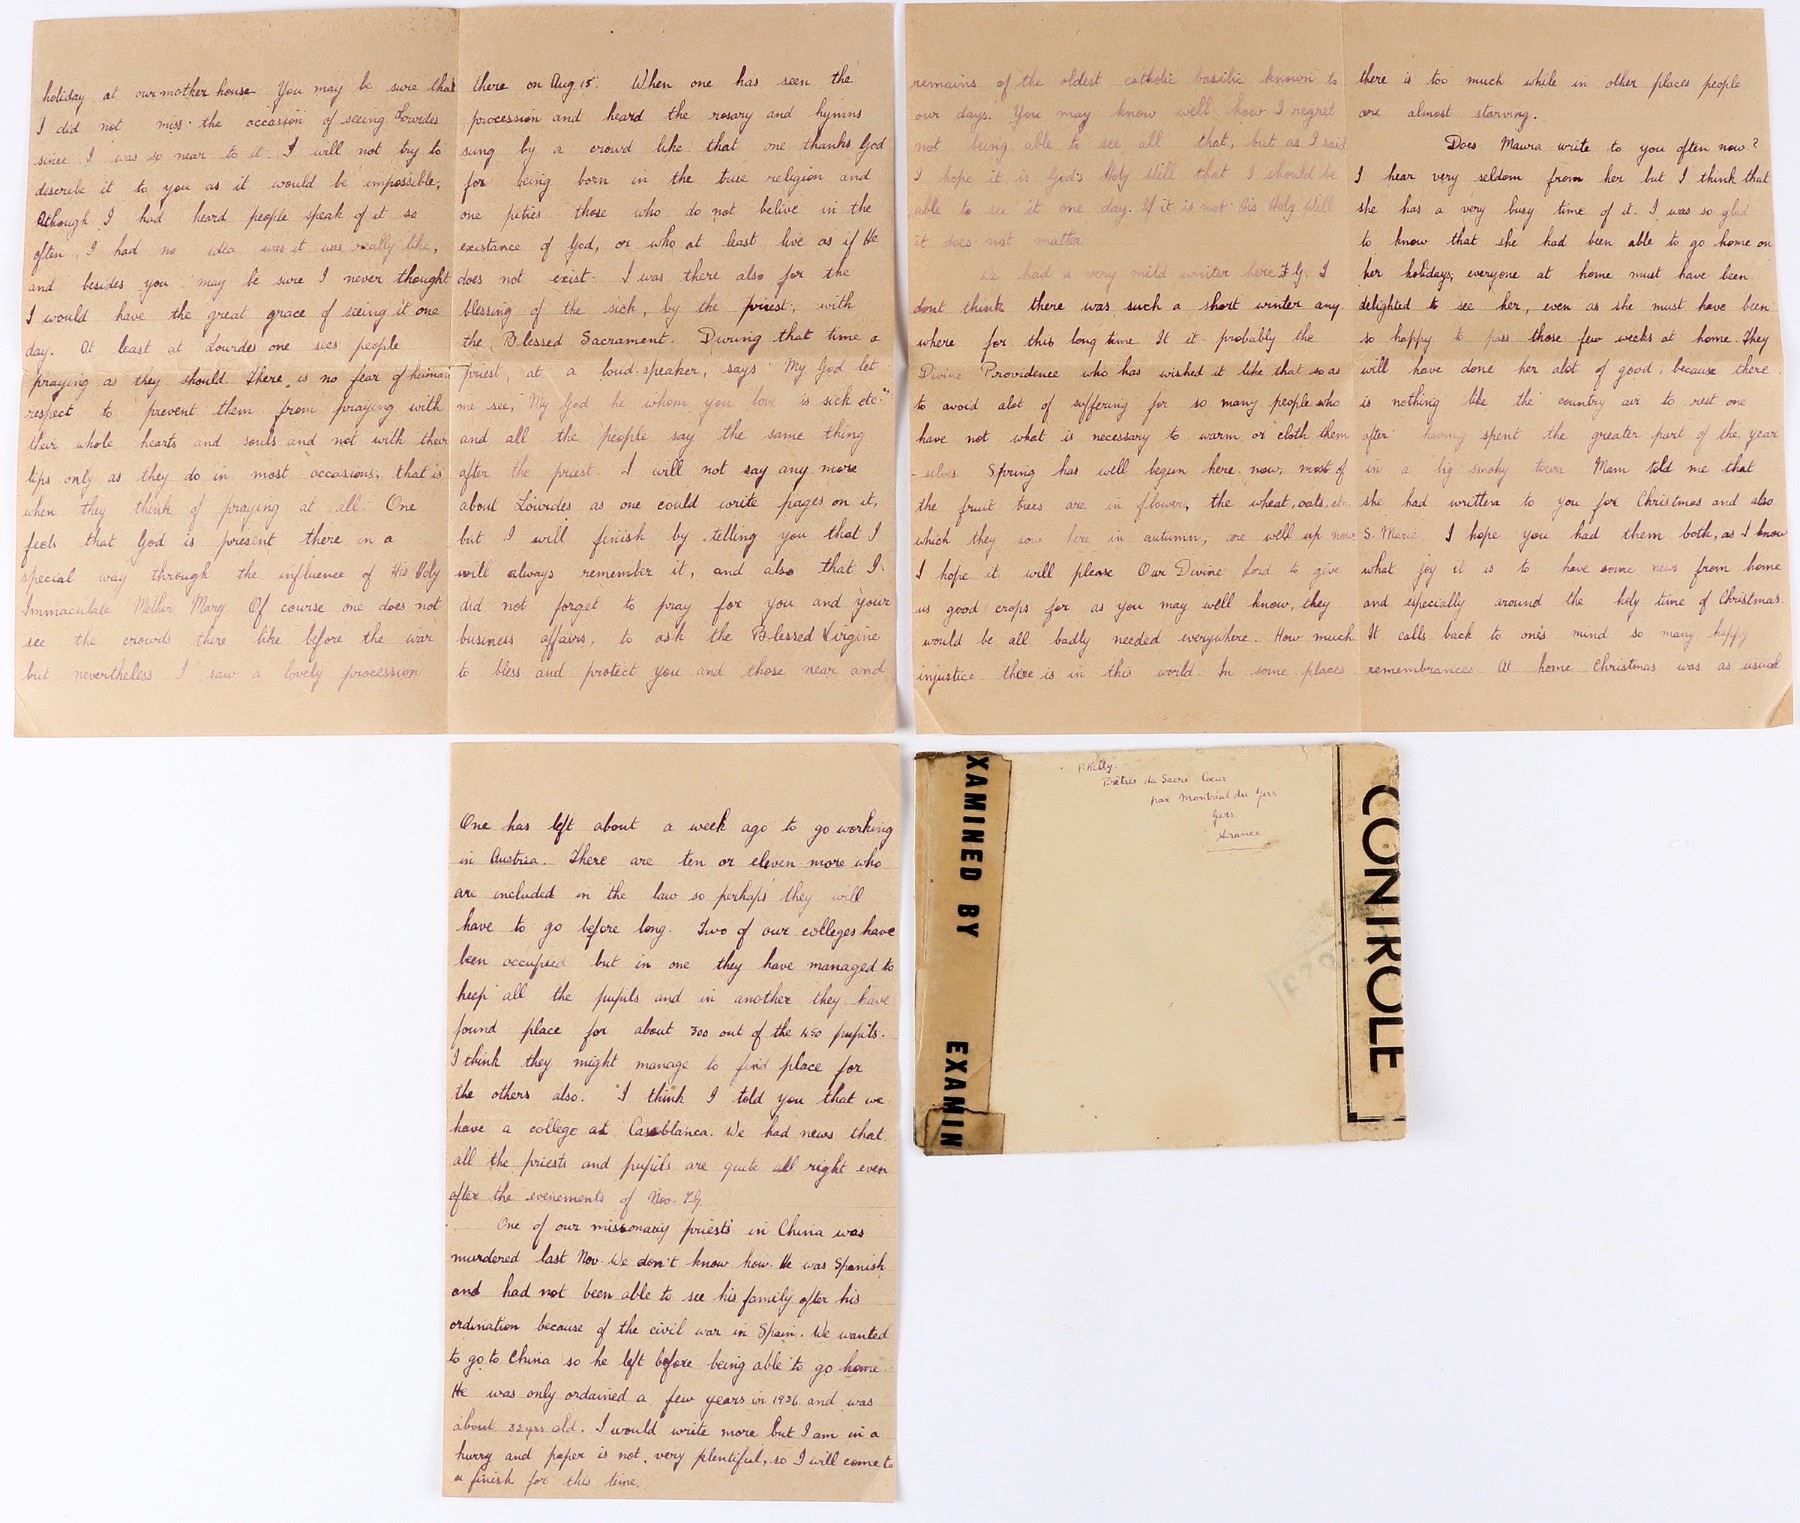 holiday at our mother house You may be sure that
I did not miss the occasion of seeing Lourdes
since I was so near to it. I will not try to
describe it to you as it would be impossible;
Although I had heard people speak of it so
often, I had no idea was it was really like,
and besides you may be sure I never thought
I would have the great grace of seeing it one
day. At least at Lourdes one sees people
praying as they should. There is no fear of human
respect to prevent them from praying with
their whole hearts and souls and not with their
lips only as they do in most occasions, that is
when they think of praying at all. One
feels that God is present there in a
special way through the influence of His Holy
Immaculate Mother Mary. Of course one does not
see the crowds there like before the war
but nevertheless I saw a lovely procession
there on Aug 15th. When one has seen the
procession and heard the rosary and hymns
sung by a crowd like that one thanks God
for being born in the true religion and
one peties those who do not belive in the
existance of God, or who at least live as if He
does not exist. I was there also for the
blessing of the sick, by the priest, with
the Blessed Sacrament. During that time a
priest, at a loud-speaker, says "My God let
me see, My God he whom you love is sick etc"
and all the people say the same thing
after the priest. I will not say any more
about Lourdes as one could write pages on it,
but I will finish by telling you that I
will always remember it, and also that I
did not forget to pray for you and your
business affairs, to ask the Blessed Virgine
to bless and protect you and those near and
remains of the oldest catholic basilic known to
our days. You may know well how I regret
not being able to see all that, but as I said
I hope it is God's Holy Will that I should be
able to see it one day. If it is not His Holy Will
it does not matter
We had a very mild winter here T.G. I
dont think there was such a short winter any
where for this long time It it probably the
Divine Providence who has wished it like that so as
to avoid alot of suffering for so many people who
have not what is necessary to warm or cloth them
-selves. Spring has well begun here now; most of
the fruit trees are in flower, the wheat, oats, etc.
which they sow here in autumn, are well up now
I hope it will please Our Divine Lord to give
us good crops for as you may well know, they
would be all badly needed everywhere. How much
injustice there is in this world. In some places
there is too much while in other places people
are almost starving.
Does Maura write to you often now?
I hear very seldom from her but I think that
she has a very busy time of it. I was so glad
to know that she had been able to go home on
her holidays; everyone at home must have been
delighted to see her, even as she must have been
so happy to pass those few weeks at home. They
will have done her alot of good, because there
is nothing like the country air to rest one
after having spent the greater part of the year
in a big smoky town Mam told me that
she had written to you for Christmas and also
S. Marie I hope you had them both, as I know
what joy it is to have some news from home
and especially around the holy time of Christmas.
It calls back to one's mind so many happy
remembrances. At home Christmas was as usual
One has left about a week ago to go working
in Austria. There are ten or eleven more who
are included in the law so perhaps they will
have to go before long. Two of our colleges have
been occupied but in one they have managed to
keep all the pupils and in another they have
found place for about 300 out of the 450 pupils.
I think they might manage to find place for
the others also. I think I told you that we
have a college at Casablanca. We had news that
all the priests and pupils are quite all right even
after the evenements of Nov. T.G.
One of our missionary priests in China was
murdered last Nov. We don't know how. He was Spanish
and had not been able to see his family after his
ordination because of the civil war in Spain. He wanted
to go to China so he left before being able to go home.
He was only ordained a few years in 1936 and was
about 32 yrs old. I would write more but I am in a
hurry and paper is not very plentiful, so I will come to
a finish for this time.
XAMINED BY
EXAMIN
P. Kelly.
Prêtres du Sacré Coeur
par Montréal du Gers
Gers
France
CONTROLE